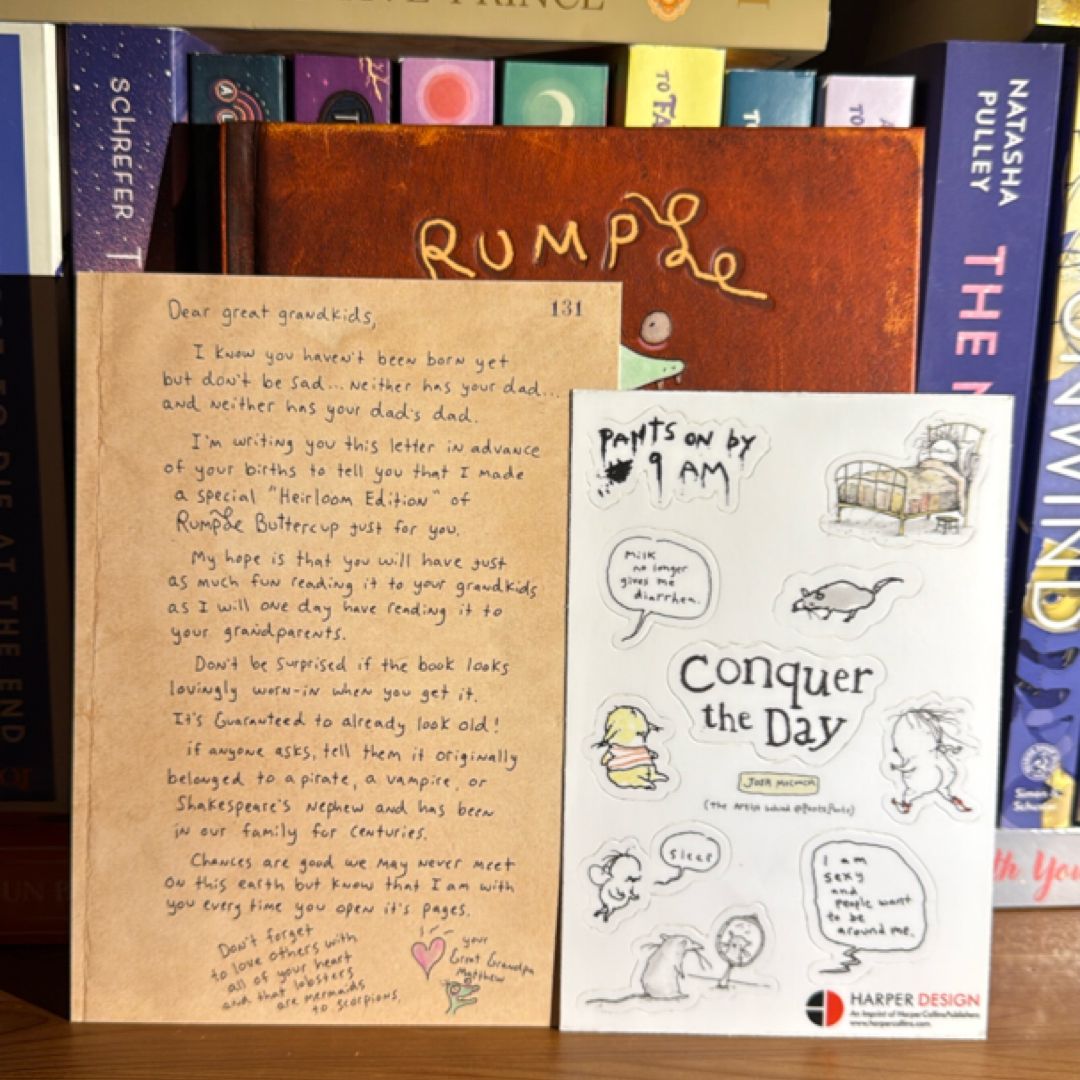 SCHREFER
T
TO FA
TO
NATASHA
PULLEY
THE
RUMPLE
131
Dear great grandkids,
I know you haven't been born yet
but don't be sad... neither has your dad...
and neither has your dad's dad.
I'm writing you this letter in advance
of your births to tell you that I made
a special "Heirloom Edition" of
Rumple Buttercup just for you.
My hope is that you will have just
as much fun reading it to your grandkids
as I will one day have reading it to
your grandparents.
Don't be surprised if the book looks
lovingly worn-in when you get it.
It's Guaranteed to already look old!
if anyone asks, tell them it originally
belonged to a pirate, a vampire, or
Shakespeare's nephew and has been
in our family for centuries.
Chances are good we may never meet
on this earth but know that I am with
you every time you open it's pages.
Don't forget
to love others with
all of your heart
and that lobsters
are mermaids
to scorpions.
your
Great Grandpa
Matthew
PANTS ON BY
9 AM
Milk
no longer
gives me
diarrhea.
Conquer
the Day
(The Artist behind @PantsPants)
Sleep
I am
sexy
and
people want
to be
around me.
HARPER DESIGN
An Imprint of HarperCollinsPublishers
www.harpercollins.com
TO DIE AT THE END
ONWIND
Simon &
th You